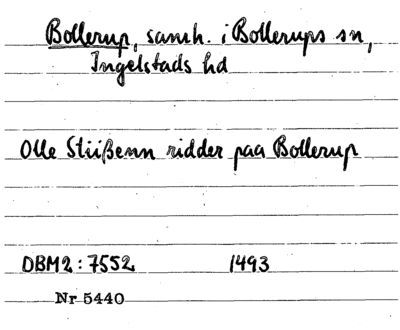 Bollerup, samh. i Bollerups sn,
Ingelstads hd
Olle Stiißenn ridder paa Bollerup
DBM2: 7552 1493
Nr 5440